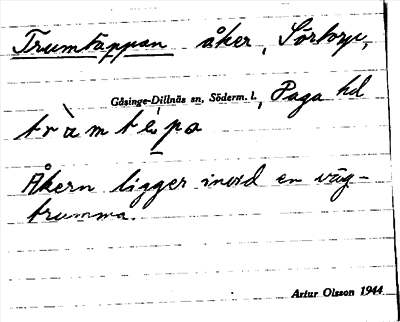 Trumtäppan åker, Sörtorp,
Gåsinge-Dillnäs sn, Söderm. l., Daga hd
tràmtépa
Åkern ligger invid en väg-
trumma.
Artur Olsson 1944